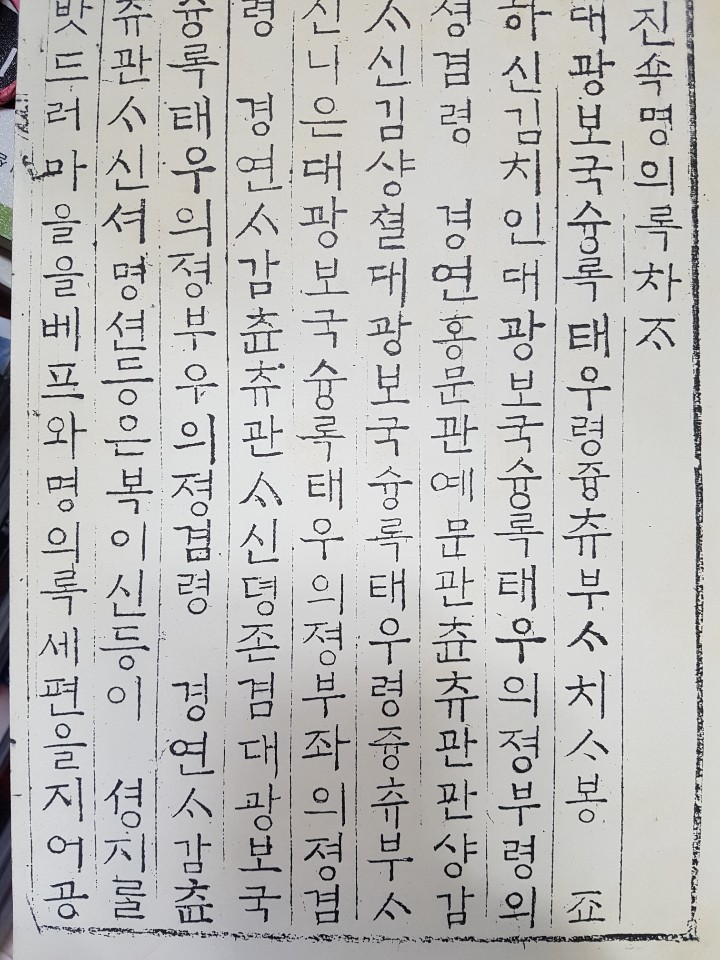 진쇽명의록차ᄌᆞ
대광보국슝록태우령즁츄부ᄉᆞ치ᄉᆞ봉 죠
하신김치인대광보국슝록태우의졍부령의
졍겸령 경연홍문관예문관츈츄관관샹감
ᄉᆞ신김샹쳘대광보국슝록태우령즁츄부ᄉᆞ
신니은대광보국슝록태우의졍부좌의졍겸
령 경연ᄉᆞ감츈츄관ᄉᆞ신뎡존겸대광보국
슝록태우의졍부우의졍겸령 경연ᄉᆞ감츈
츄관ᄉᆞ신셔명션등은복이신등이 셩지를
밧드러마을을베프와명의록세편을지어공